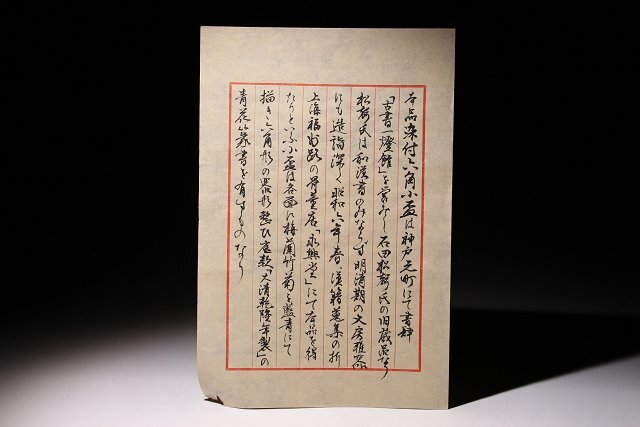 本品染付六角小盃は神戸元町にて書肆
「古書一燈館」を営みし石田松琴氏の旧蔵品なり
松琴氏は和漢書のみならず明清期の文房雅器
にも造詣深く昭和六年春、漢籍蒐集の折
上海福州路の骨董店「永興堂」にて本品を得
たりといふ小盃は各面に梅蘭竹菊を藍青にて
描き六角形の器形整ひ底款「大清乾隆年製」の
青花篆書を有するものなり